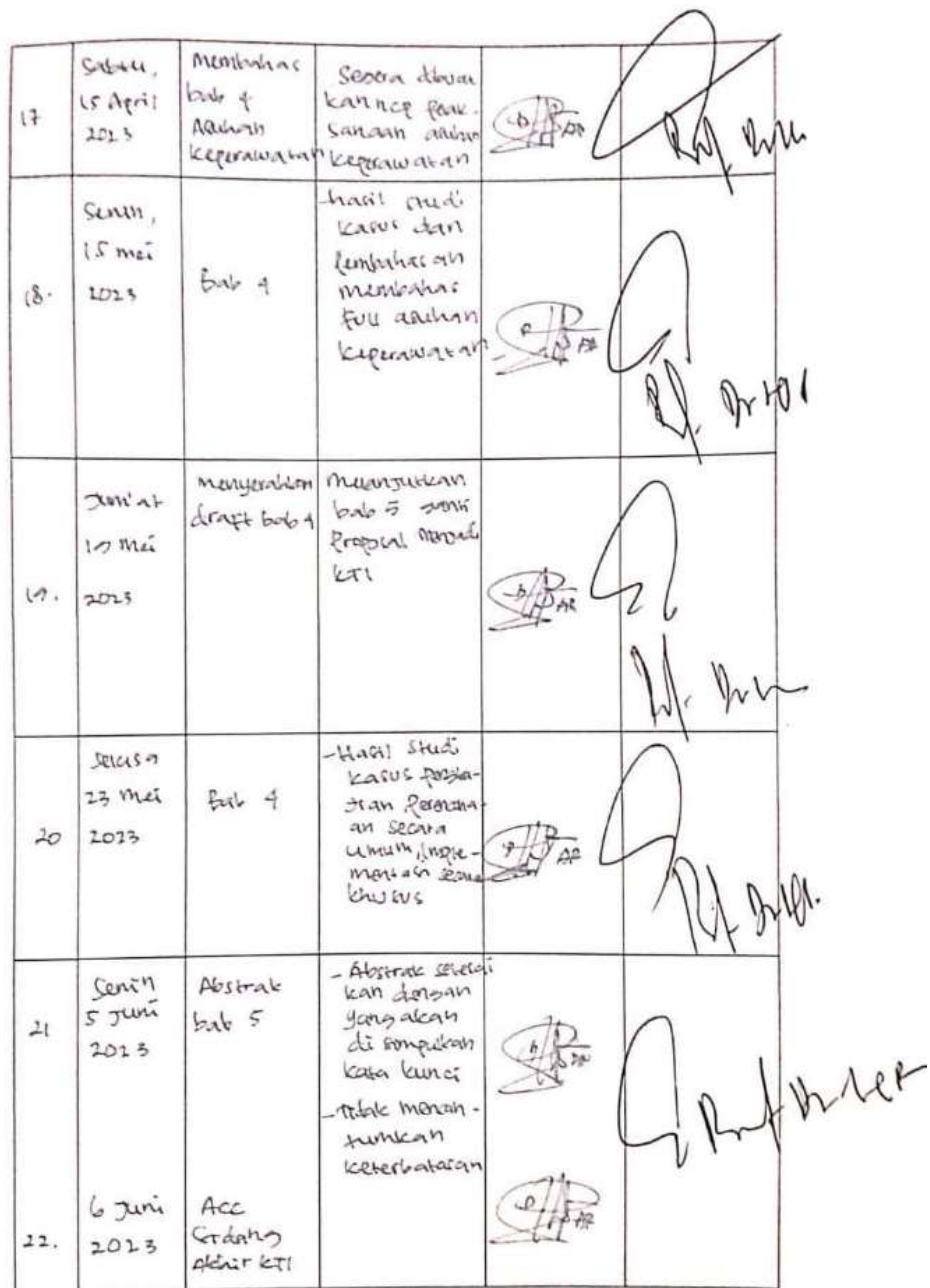 17
Sabtu,
15 April
2023
Membahas
bab 4
Asuhan
keperawatan
Segera
sanaan asuhan
keperawatan
18.
Senin,
15 mei
2023
Bab 4
-hasil studi
kasus dan
pembahasan
membahas
full asuhan
keperawatan
19.
Jum'at
19 mei
2023
menyerahkan
draft bab 4
melanjutkan
bab 5
Proposal menjadi
KTI
20
Selasa
23 mei
2023
Bab 4
-Hasil studi
kasus
an secara
umum, imple-
mentasi secara
khusus
21
Senin
5 Juni
2023
Abstrak
bab 5
- Abstrak
kan dengan
yang akan
kata kunci
- Tidak mencan-
tumkan
keterbatasan
22.
6 Juni
2023
Acc
Sidang
Akhir KTI